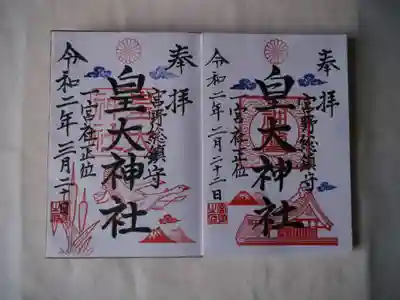 奉拝
宮野総鎮守
皇大神社
一宮社正位
令和二年二月二十二日
奉拝
宮野総鎮守
皇大神社
一宮社正位
令和二年三月二十